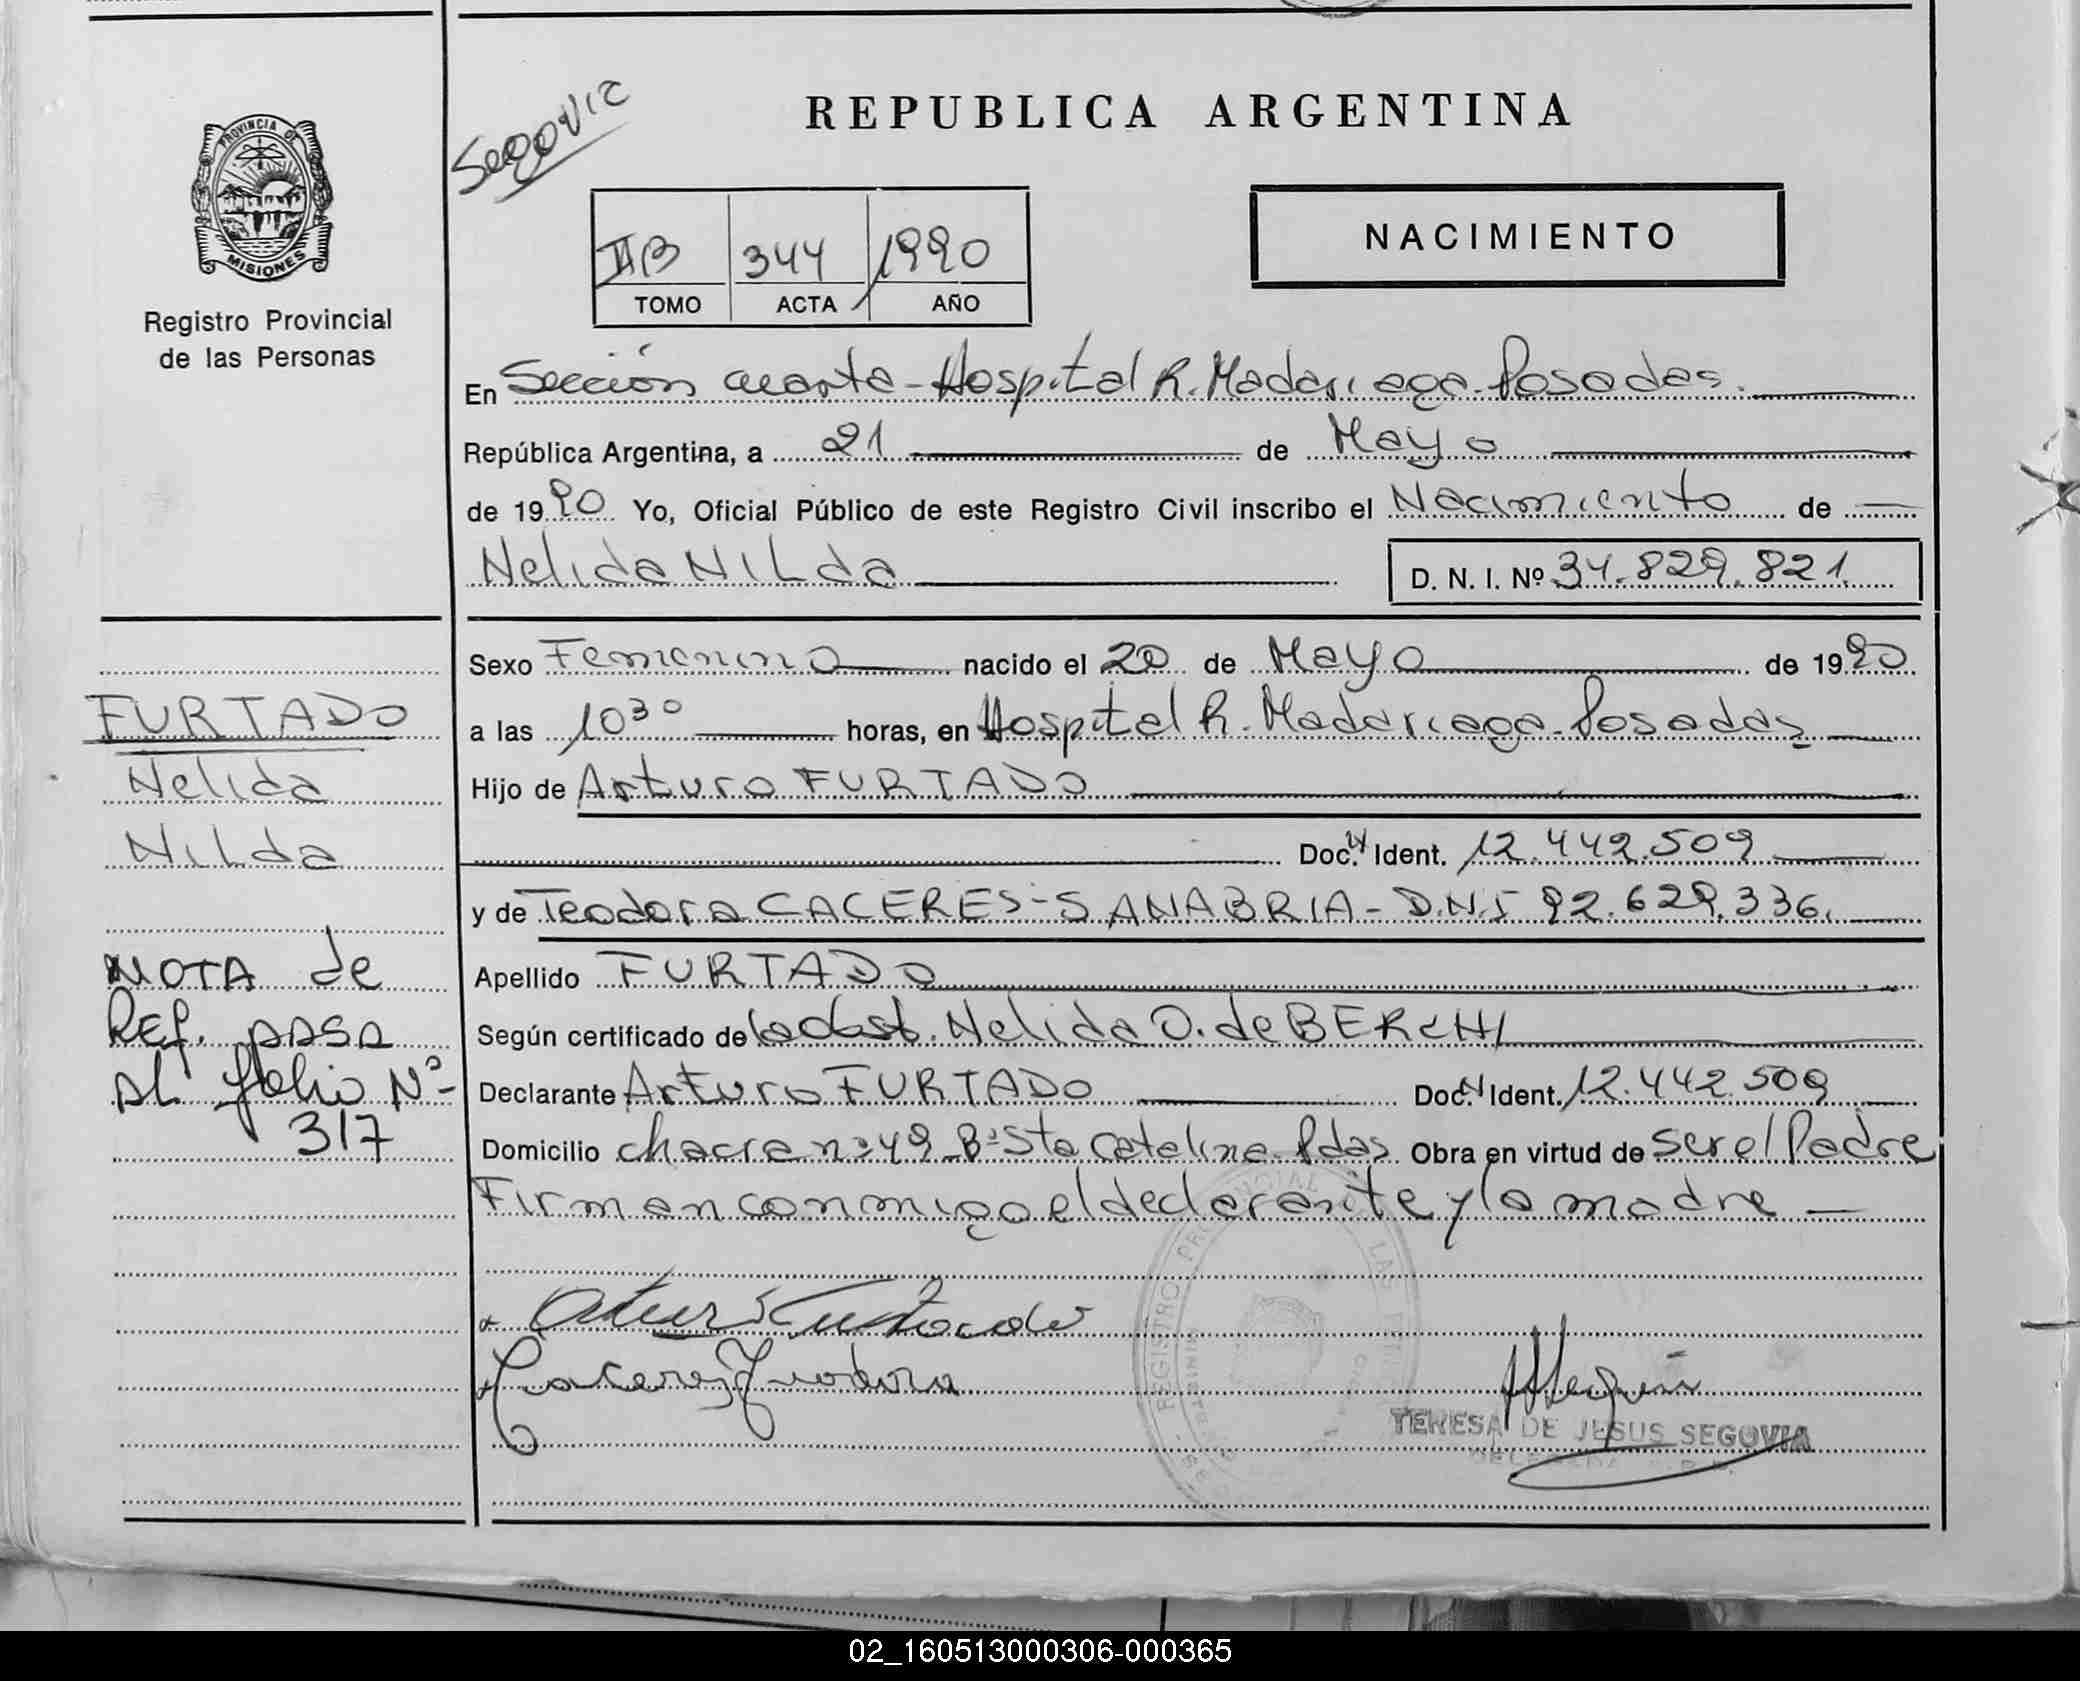 PROVINCIA DE
MISIONES
Registro Provincial
de las Personas
Segovia
REPUBLICA ARGENTINA
IIB 344 1990
TOMO ACTA AÑO
NACIMIENTO
En Sección cuarta - Hospital R. Madariaga - Posadas.
República Argentina, a 21 de Mayo
de 1990 Yo, Oficial Público de este Registro Civil inscribo el Nacimiento de
Nelida NILda
D. N. I. Nº 34.829.821
Sexo Femenino nacido el 20 de Mayo de 1990
a las 10 30 horas, en Hospital R. Madariaga - Posadas
Hijo de Arturo FURTADO
Doc. Ident. 12.442.509
y de Teodora CACERES - SANABRIA - D.N.I 92.629.336.
Apellido FURTADO
Según certificado de la obst. Nelida O. de BERCHI
Declarante Arturo FURTADO Doc. Ident. 12.442.509
Domicilio chacra nº 49 - Bº Sta Catalina - Pdas Obra en virtud de ser el Padre
Firman conmigo el declarante y la madre
FURTADO
Nelida
Nilda
NOTA de
Ref. pasa
al folio Nº
317
Arturo Furtado
Caceres Teodora
REGISTRO PROVINCIAL DE LAS PERSONAS
TERESA DE JESUS SEGOVIA
DELEGADA
02_160513000306-000365